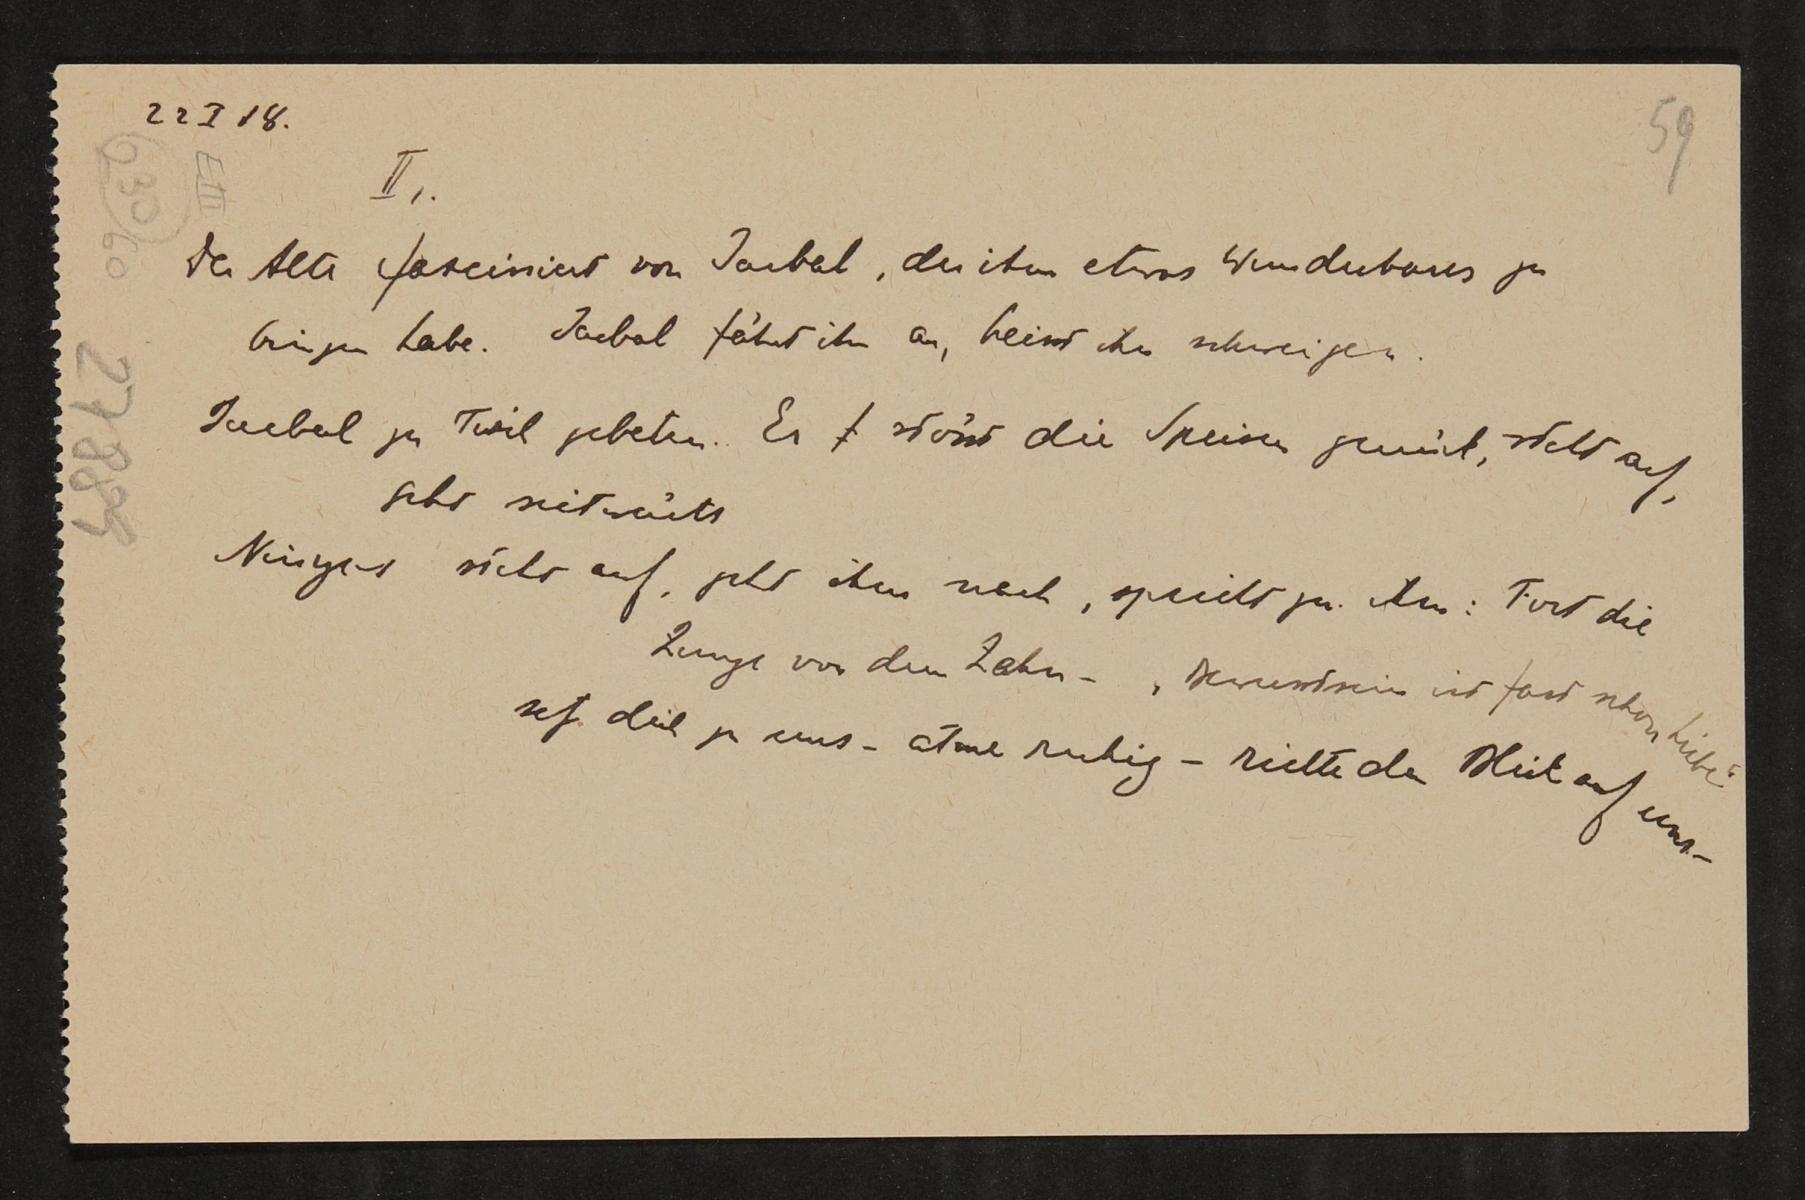 22 I 18.
59
E III
230/60
27889
II,.
Der Alte fasciniert von Jaebal, der ihm etwas Wunderbares zu
bringen habe. Jaebal fährt ihn an, heisst ihn schweigen.
Jaebal zu Tisch gebeten. Er t stösst die Speisen zurück, steht auf,
geht seitwärts
steht auf, geht ihm nach, spricht zu ihm: Fort die
Zunge von den Zähn - „ Bewusstsein ist fast schon Liebe“
dich zu uns - atme ruhig - richte den Blick auf uns -